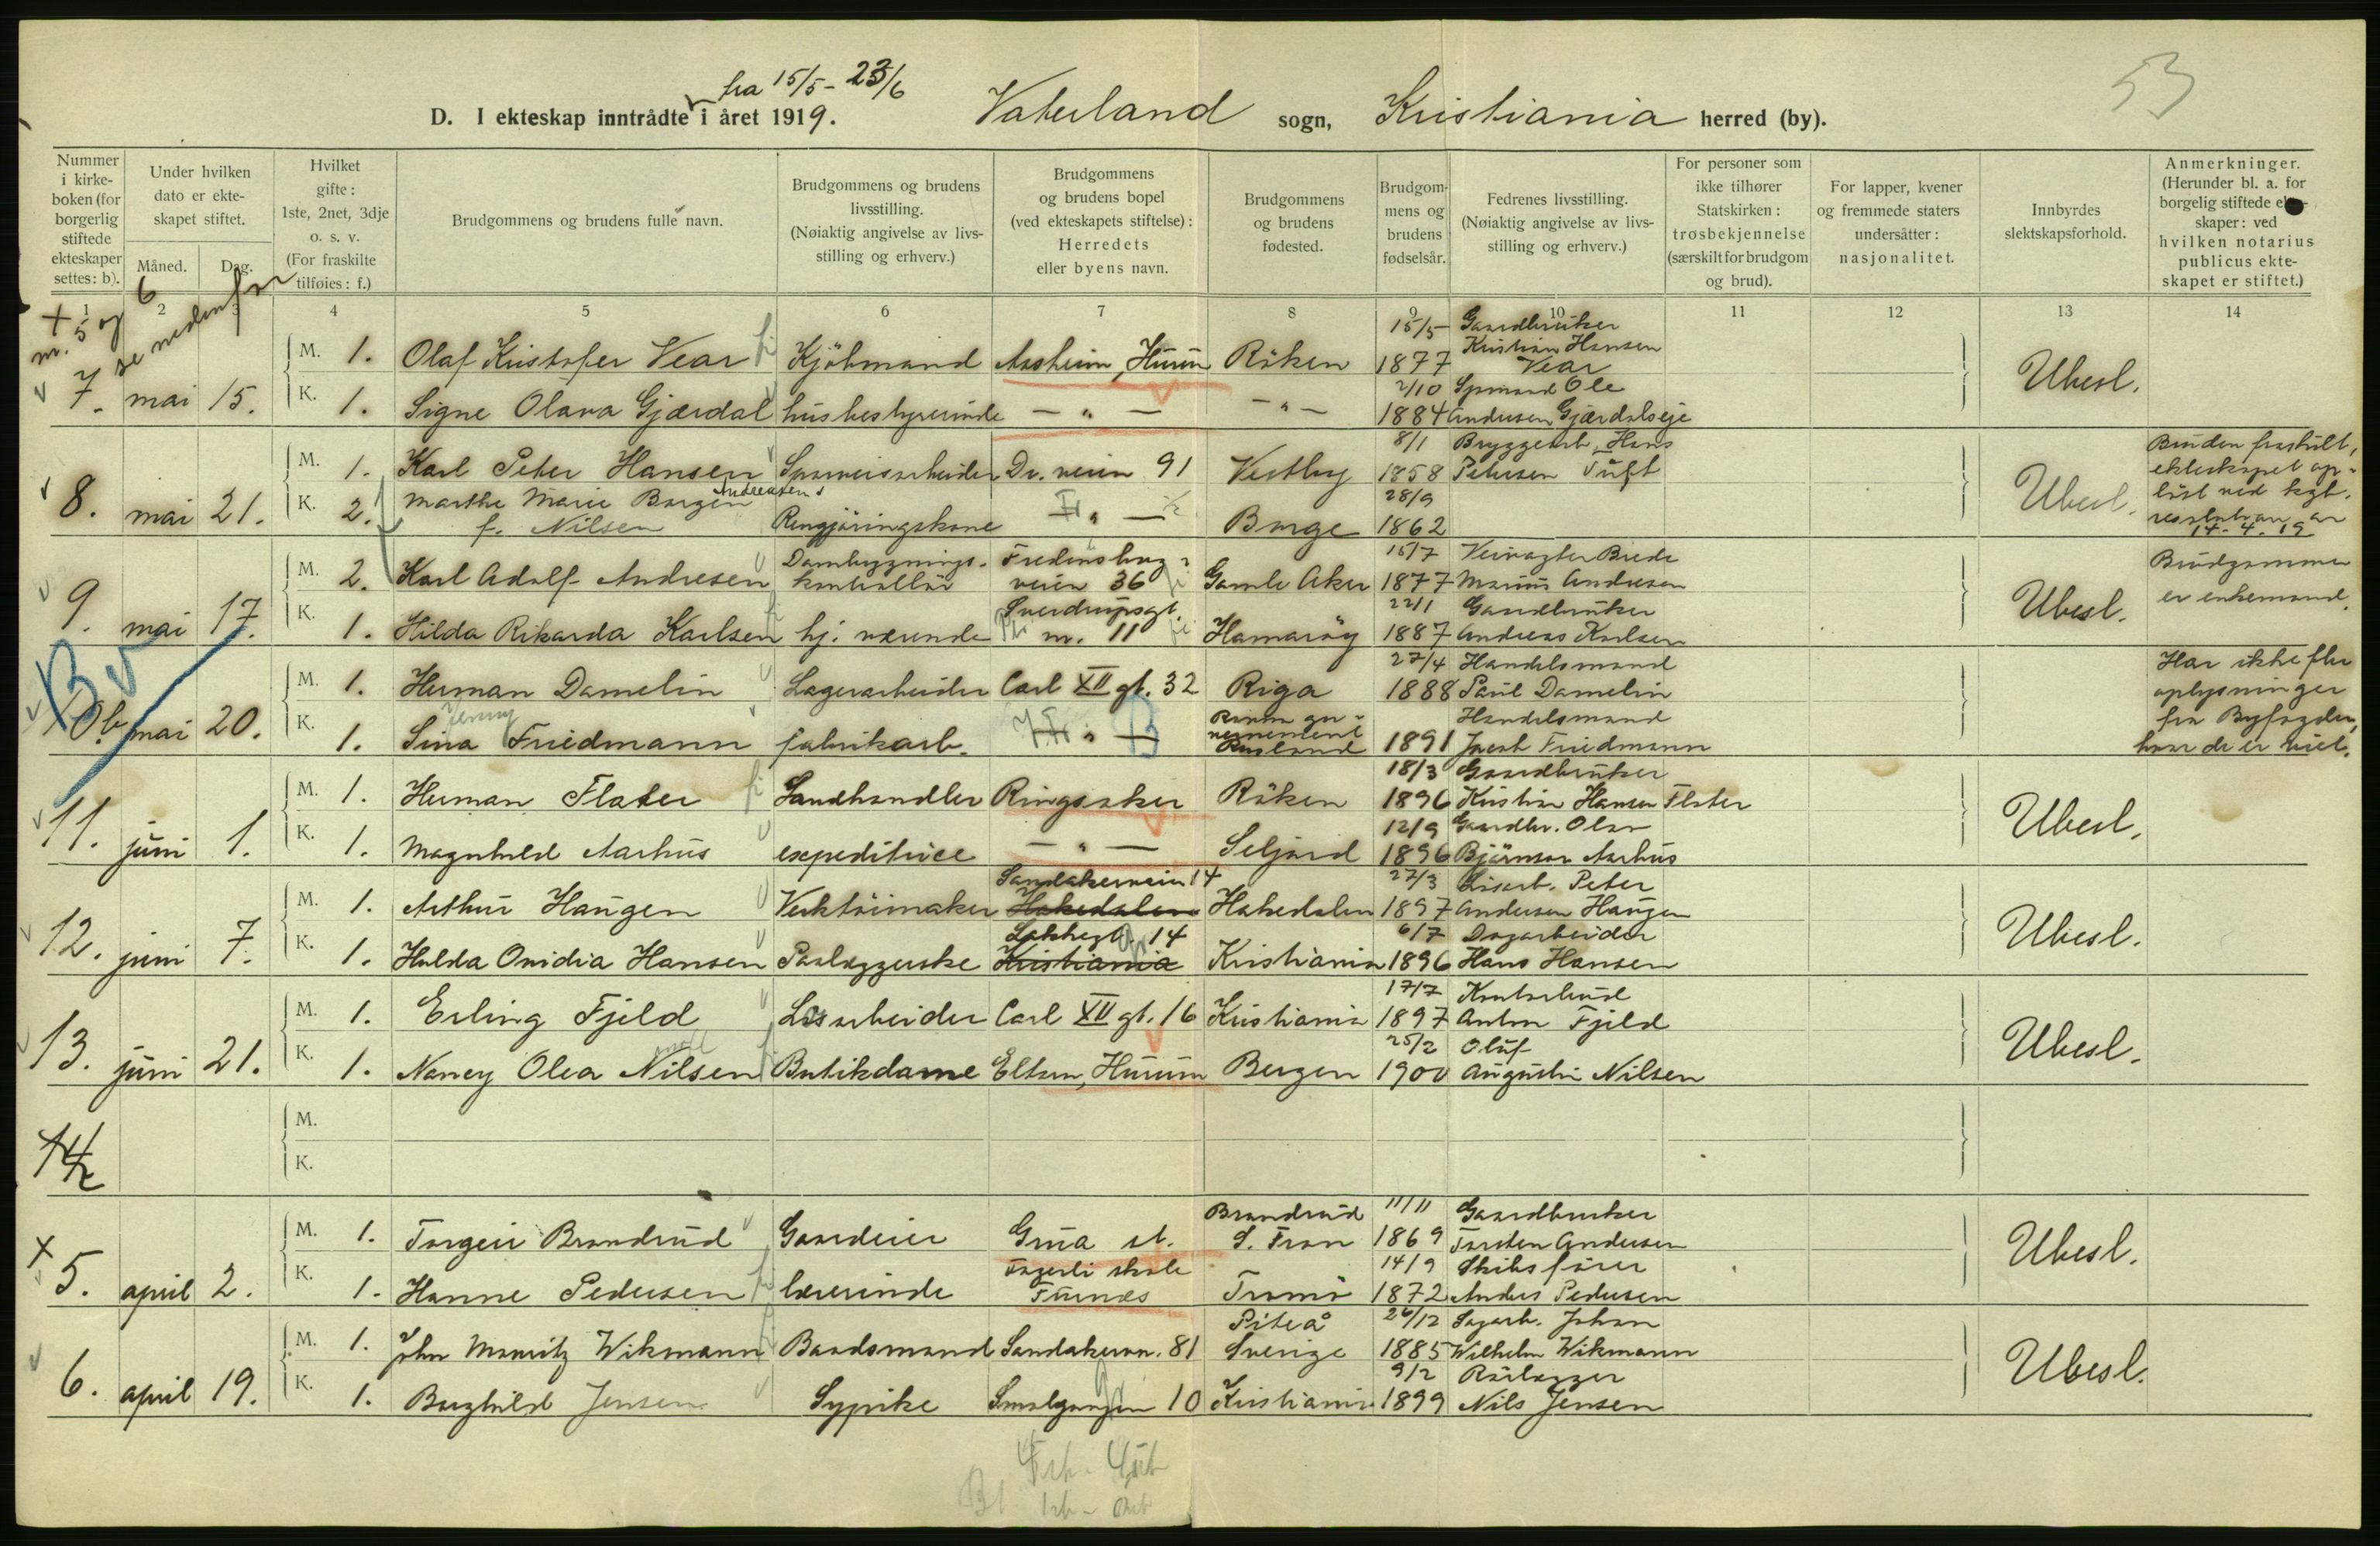 53
fra 15/5 - 23/6
D. I ekteskap inntrådte i året 1919. Vaterland sogn, Kristiania herred (by).
Nummer i kirke-boken (for borgerlig stiftede ekteskaper settes: b).
Under hvilken dato er ekte-skapet stiftet.
Måned. Dag.
Hvilket gifte: 1ste, 2net, 3dje o. s. v. (For fraskilte tilføies: f.)
Brudgommens og brudens fulle navn.
Brudgommens og brudens livsstilling. (Nøiaktig angivelse av livs-stilling og erhverv.)
Brudgommens og brudens bopel (ved ekteskapets stiftelse): Herredets eller byens navn.
Brudgommens og brudens fødested.
Brudgom-mens og brudens fødselsår.
Fedrenes livsstilling. (Nøiaktig angivelse av livs-stilling og erhverv.)
For personer som ikke tilhører Statskirken: trosbekjennelse (særskilt for brudgom og brud).
For lapper, kvener og fremmede staters undersåtter: nasjonalitet.
Innbyrdes slektskapsforhold.
Anmerkninger. (Herunder bl. a. for borgelig stiftede ekte-skaper: ved hvilken notarius publicus ekte-skapet er stiftet.)
1 2 3 4 5 6 7 8 9 10 11 12 13 14
+ nr. 5 og 6 se nedenfor
7. mai 15. M. 1. Olaf Kristofer Vear Kjöbmand Aasheim, Hurum Röken 15/5 1877 Gaardbruker Kristian Hansen Vear Ubesl.
K. 1. Signe Olava Gjærdal husbestyrerinde — " — — " — 2/10 1884 Spmand Ole Andersen Gjærdalseje
8. mai 21. M. 1. Karl Peter Hansen Sporveisarbeider Dr. veien 91 Vestby 8/1 1858 Bryggearb. Hans Petersen Tuft Ubesl. Bruden fraskilt, ekteskapet op-löst ved kgl. resolution av 14-4.19
K. 2. Marthe Marie Borgen Andreasen f. Nilsen Rengjöringskone — " — Borge 28/9 1862
9. mai 17. M. 2. Karl Adolf Andresen Dambygnings-kontrollör Fredensborg-veien 36 Gamle Aker 15/7 1877 Veivogter Brede Marius Andresen Ubesl. Brudgommen er enkemand.
K. 1. Hilda Rikarda Karlsen hj. værende Sverdrupsgt. nr. 11 Hamaröy 22/1 1887 Gaardbruker Andreas Karlsen
10 b. mai 20. M. 1. Herman Damelin Lagerarbeider Carl XII gt. 32 Riga 27/4 1888 Handelsmand Paul Damelin Har ikke fler oplysninger fra Byfogden, hvor de er viet.
K. 1. Sina Jenny Friedmann fabrikarb. — " — B gu-vernement Rusland 1891 Handelsmand Jacob Friedmann
B
11. juni 1. M. 1. Herman Flater Landhandler Ringsaker Röken 18/3 1896 Gaardbruker Kristian Hansen Flater Ubesl.
K. 1. Magnhild Aarhus expeditrice — " — Seljord 12/9 1896 Gaardbr. Olav Björnson Aarhus
12. juni 7. M. 1. Arthur Haugen Verktöimaker Sandakerveien 14 Hakedalen Hakedalen 27/3 1897 Lösarb. Peter Andersen Haugen Ubesl.
K. 1. Hulda Ovidia Hansen Paalæggerske Lakkegt. 14 Kristiania Kristiania 6/7 1896 Dagarbeider Hans Hansen
13. juni 21. M. 1. Erling Fjeld Lösarbeider Carl XII gt. 16 Kristiania 17/7 1897 Kontorbud Anton Fjeld Ubesl.
K. 1. Nancy Olea Nilsen Butikdame Eltun, Hurum Bergen 25/2 1900 Oluf Augustin Nilsen
14 M.
K.
+ 5. april 2. M. 1. Torgeir Brandrud Gaardeier Grua st. Brandrud S. Fron 11/11 1869 Gaardbruker Torsten Andersen Ubesl.
K. 1. Hanne Pedersen lærerinde Fagerli skole Furnes Tromö 14/9 1872 Skibsförer Anders Pedersen
6. april 19. M. 1. John Mauritz Wikmann Baadsmand Sandakervn. 81 Piteå Sverige 26/12 1885 Sagarb. Johan Wilhelm Wikmann Ubesl.
K. 1. Borghild Jensen Sypike Smalgangen 10 Kristiania 9/2 1899 Rörlægger Nils Jensen